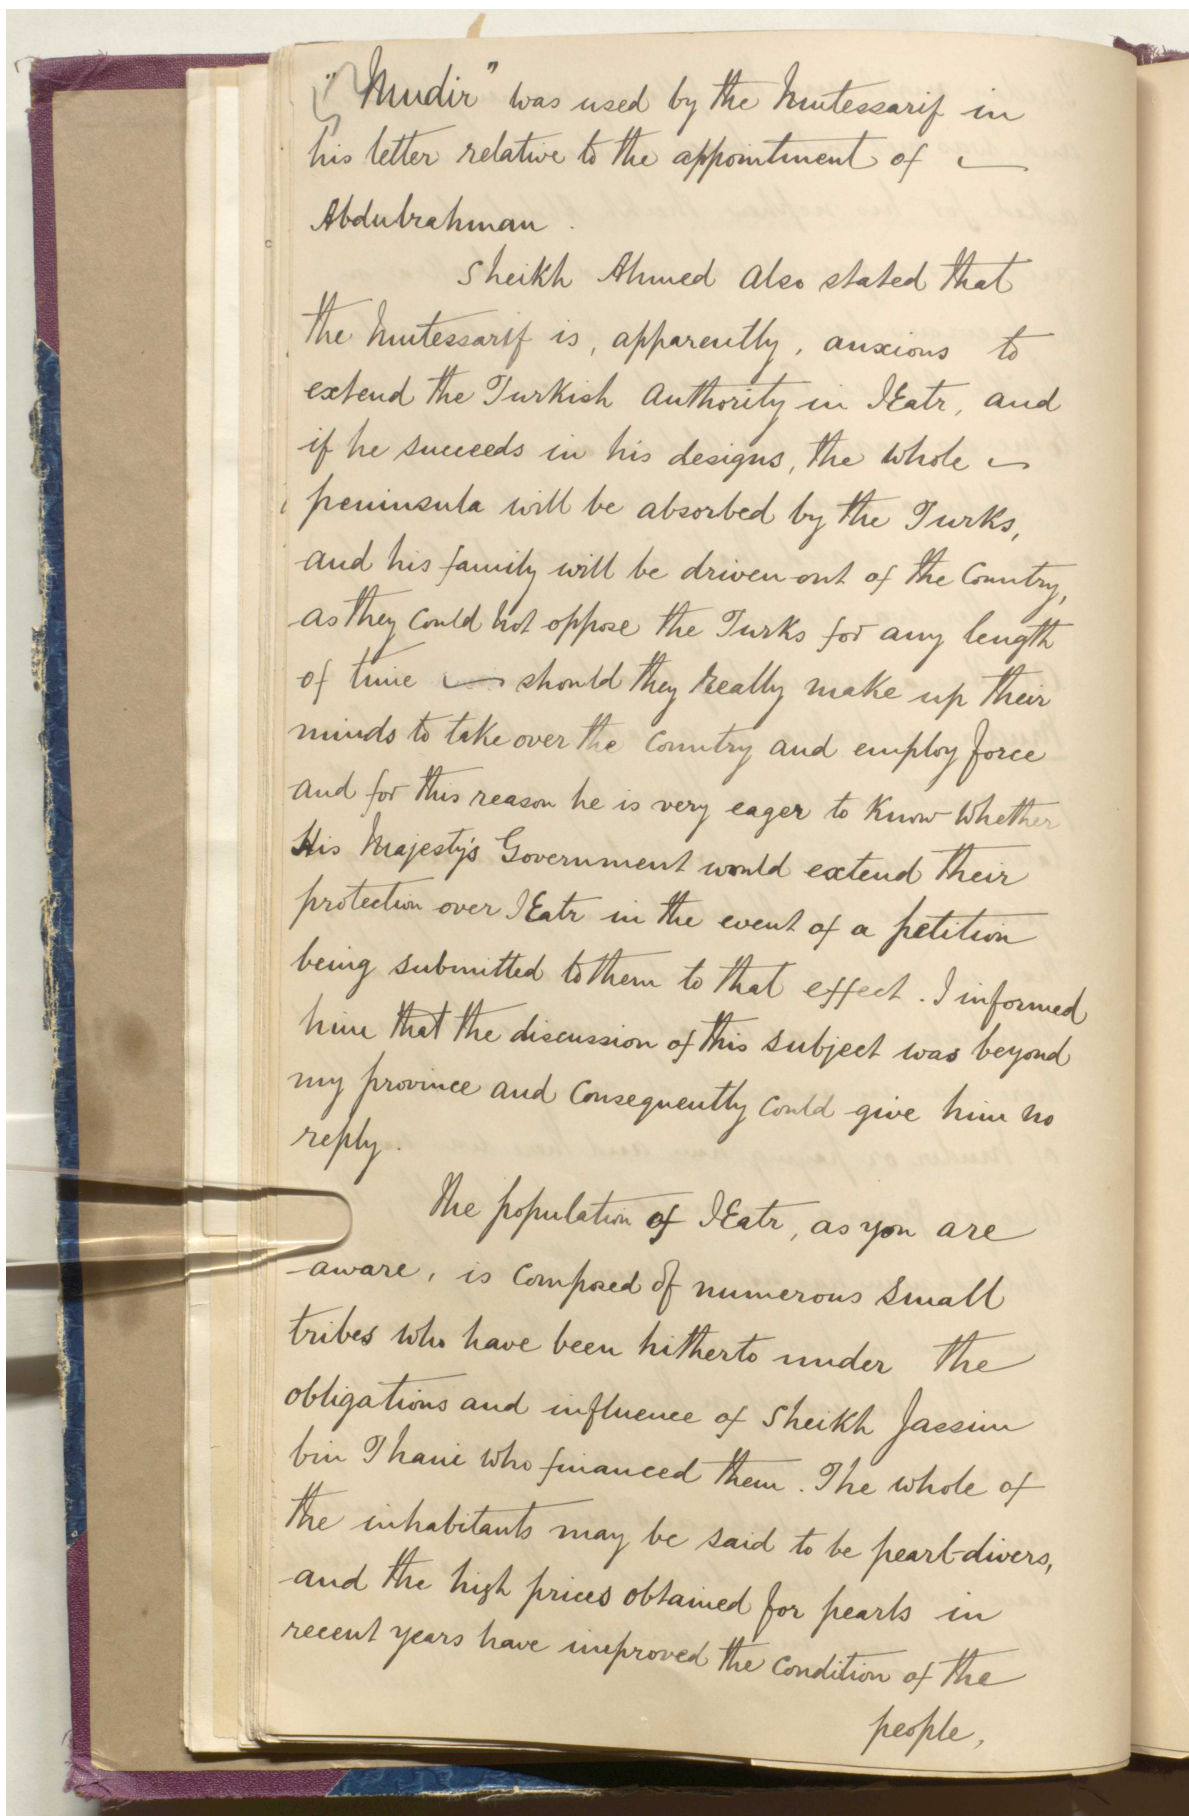 "Mudir" was used by the Mutessarif in
his letter relative to the appointment of
Abdulrahman.
Sheikh Ahmed also stated that
the Mutessarif is, apparently, anxious to
extend the Turkish Authority in Katr, and
if he succeeds in his designs, the whole
peninsula will be absorbed by the Turks,
and his family will be driven out of the Country,
as they could not oppose the Turks for any length
of time should they really make up their
minds to take over the Country and employ force
and for this reason he is very eager to know whether
His Majesty's Government would extend their
protection over Katr in the event of a petition
being submitted to them to that effect. I informed
him that the discussion of this subject was beyond
my province and Consequently could give him no
reply.
The population of Katr, as you are
aware, is Composed of numerous small
tribes who have been hitherto under the
obligations and influence of Sheikh Jassim
bin Thani who financed them. The whole of
the inhabitants may be said to be pearl-divers,
and the high prices obtained for pearls in
recent years have improved the condition of the
people,